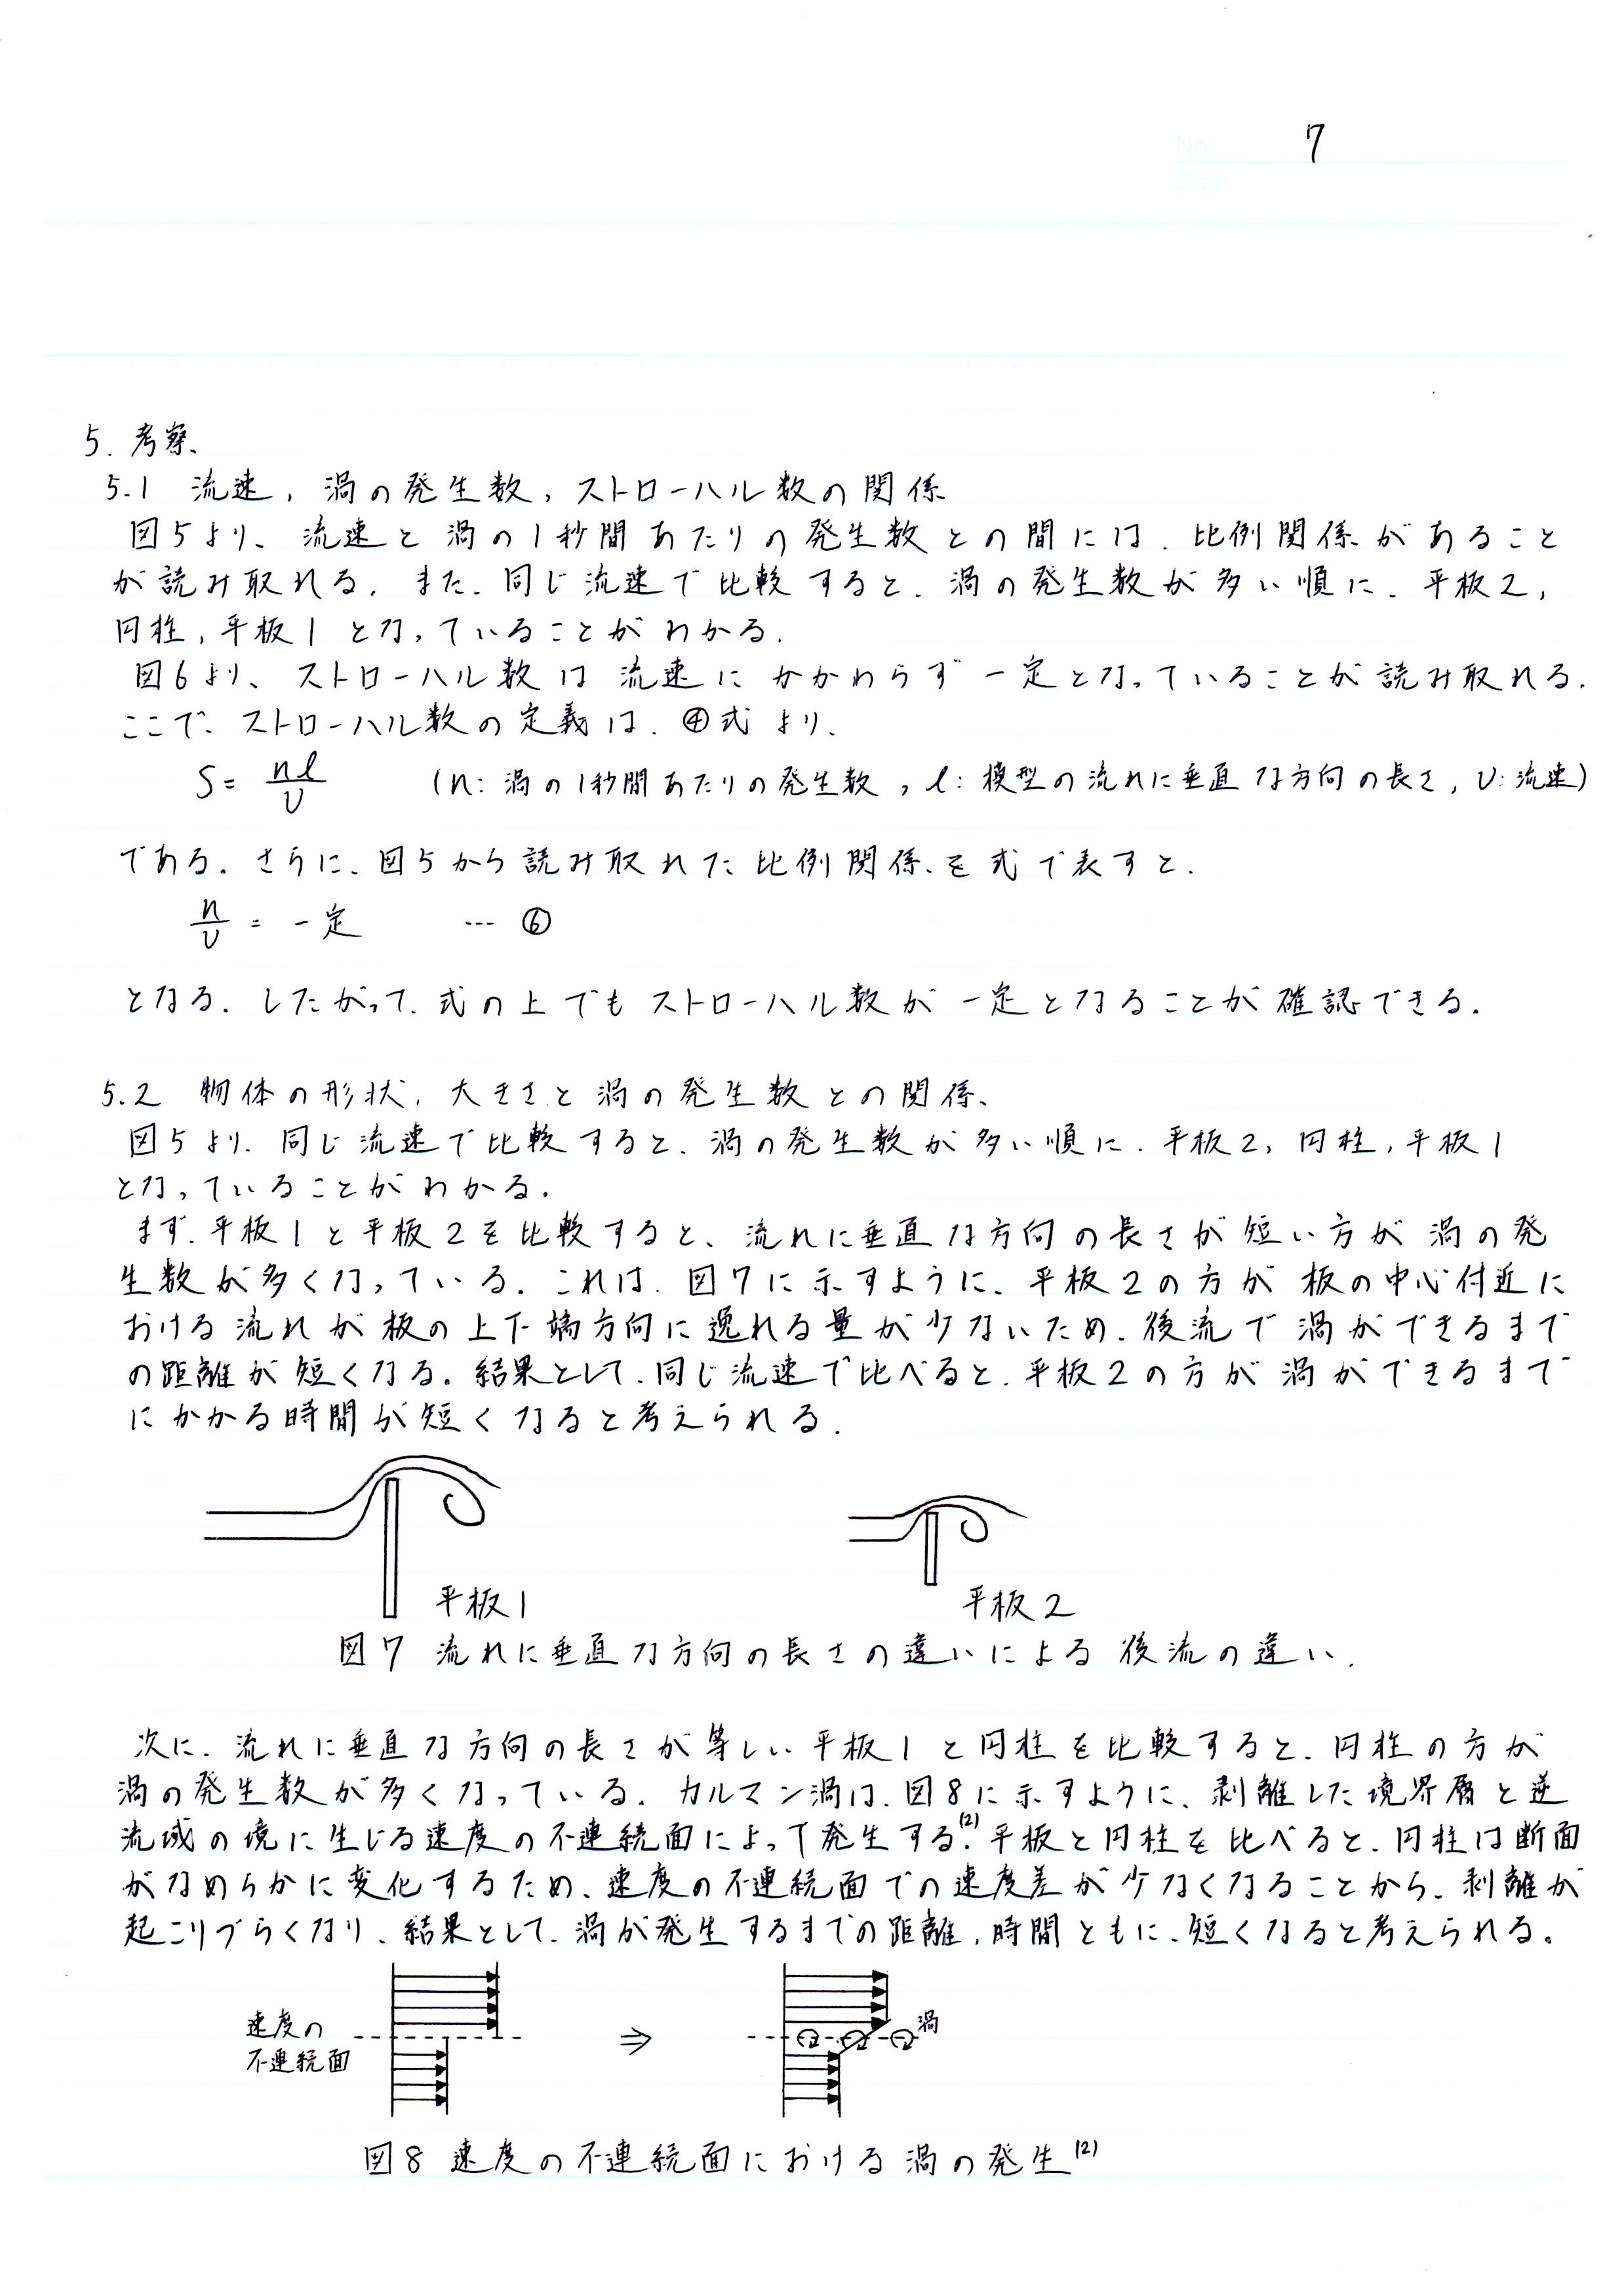 No. 7
Date
5. 考察
5.1 流速, 渦の発生数, ストローハル数の関係
図5より、流速と渦の1秒間あたりの発生数との間には、比例関係があること
が読み取れる。また、同じ流速で比較すると、渦の発生数が多い順に、平板2,
円柱, 平板1となっていることがわかる。
図6より、ストローハル数は流速にかかわらず一定となっていることが読み取れる。
ここで、ストローハル数の定義は、④式より、
S = nl/v (n: 渦の1秒間あたりの発生数, l: 模型の流れに垂直な方向の長さ, v: 流速)
である。さらに、図5から読み取れた比例関係を式で表すと、
n/v = 一定 … ⑥
となる。したがって、式の上でもストローハル数が一定となることが確認できる。
5.2 物体の形状, 大きさと渦の発生数との関係
図5より、同じ流速で比較すると、渦の発生数が多い順に、平板2, 円柱, 平板1
となっていることがわかる。
まず、平板1と平板2を比較すると、流れに垂直な方向の長さが短い方が渦の発
生数が多くなっている。これは、図7に示すように、平板2の方が板の中心付近に
おける流れが板の上下端方向に逸れる量が少ないため、後流で渦ができるまで
の距離が短くなる。結果として、同じ流速で比べると、平板2の方が渦ができるまで
にかかる時間が短くなると考えられる。
平板1
平板2
図7 流れに垂直な方向の長さの違いによる後流の違い
次に、流れに垂直な方向の長さが等しい平板1と円柱を比較すると、円柱の方が
渦の発生数が多くなっている。カルマン渦は、図8に示すように、剥離した境界層と逆
流域の境に生じる速度の不連続面によって発生する(2)。平板と円柱を比べると、円柱は断面
がなめらかに変化するため、速度の不連続面での速度差が少なくなることから、剥離が
起こりづらくなり、結果として、渦が発生するまでの距離, 時間ともに、短くなると考えられる。
速度の
不連続面
⇒
渦
図8 速度の不連続面における渦の発生(2)